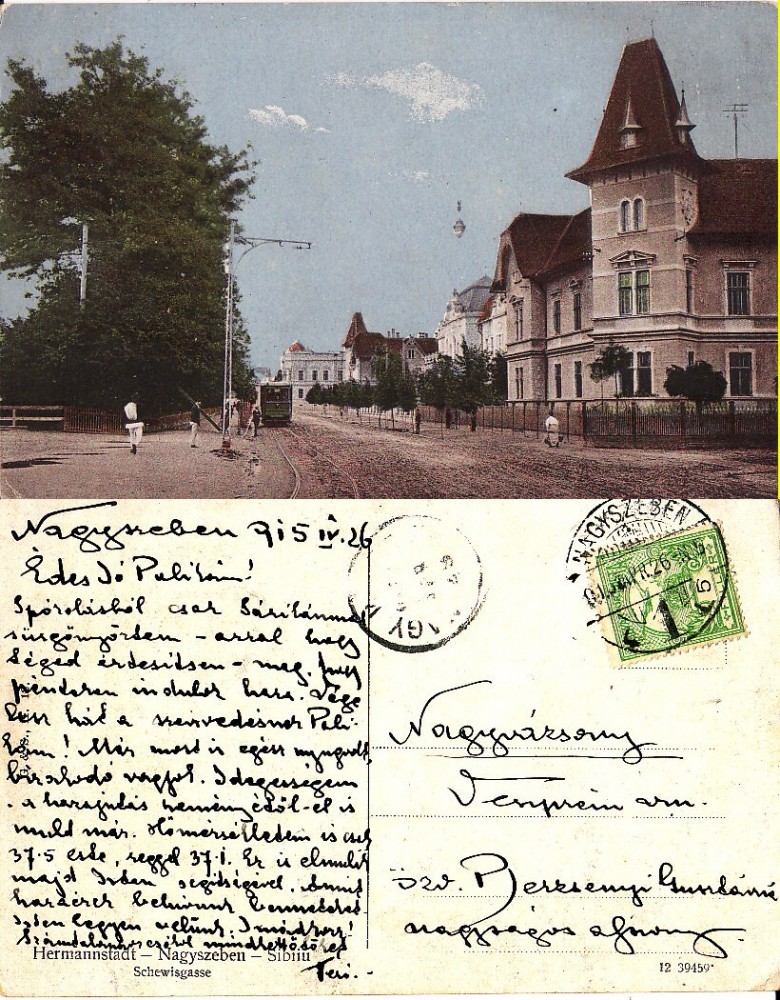 Nagyszeben 915 IV. 26
Édes Jó Palikám!
Spórolásból csak Sárikának
sürgönyöztem – azzal hogy
Téged értesítsen – meg, hogy
pénteken indulok haza. Vége
lesz hát a szenvedésnek Pali-
kám! Már most is egész nyugodt,
bizakodó vagyok. Idegességem
a hazajutás reményétől-el is
múlt már. Hőmérsékletem is csak
37·5 este, reggel 37·1. Ez is elmúlik
majd Isten segítségével, amint
hazaérek
Isten legyen velünk. Imádkozz!
Számtalanszor csókol mindkettőtöket
Teri.-
Hermannstadt – Nagyszeben – Sibiiu
Schewisgasse
NAGY
NAGYSZEBEN
Nagyvázsony
Veszprém vm.
özv. Berzsenyi Gusztávné
nagyságos asszony
12 39459·